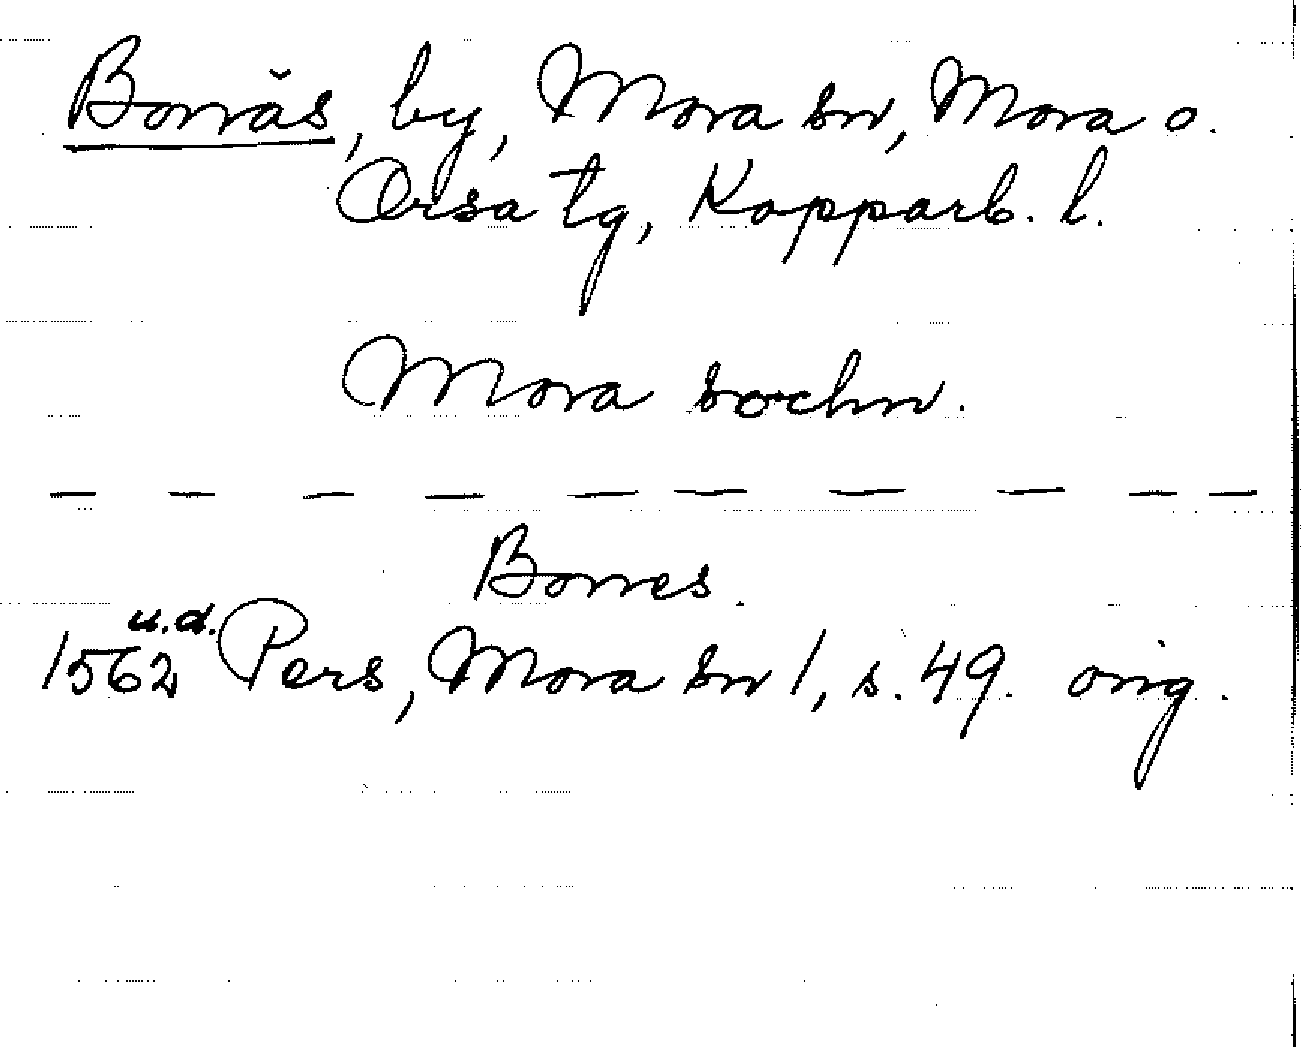 Borrås, by, Mora sn, Mora o.
Orsa tg, Kopparb. l.
Mora sochn.
— — — — — — — — — —
Borres.
1562 u.d. Pers, Mora sn 1, s. 49. orig.